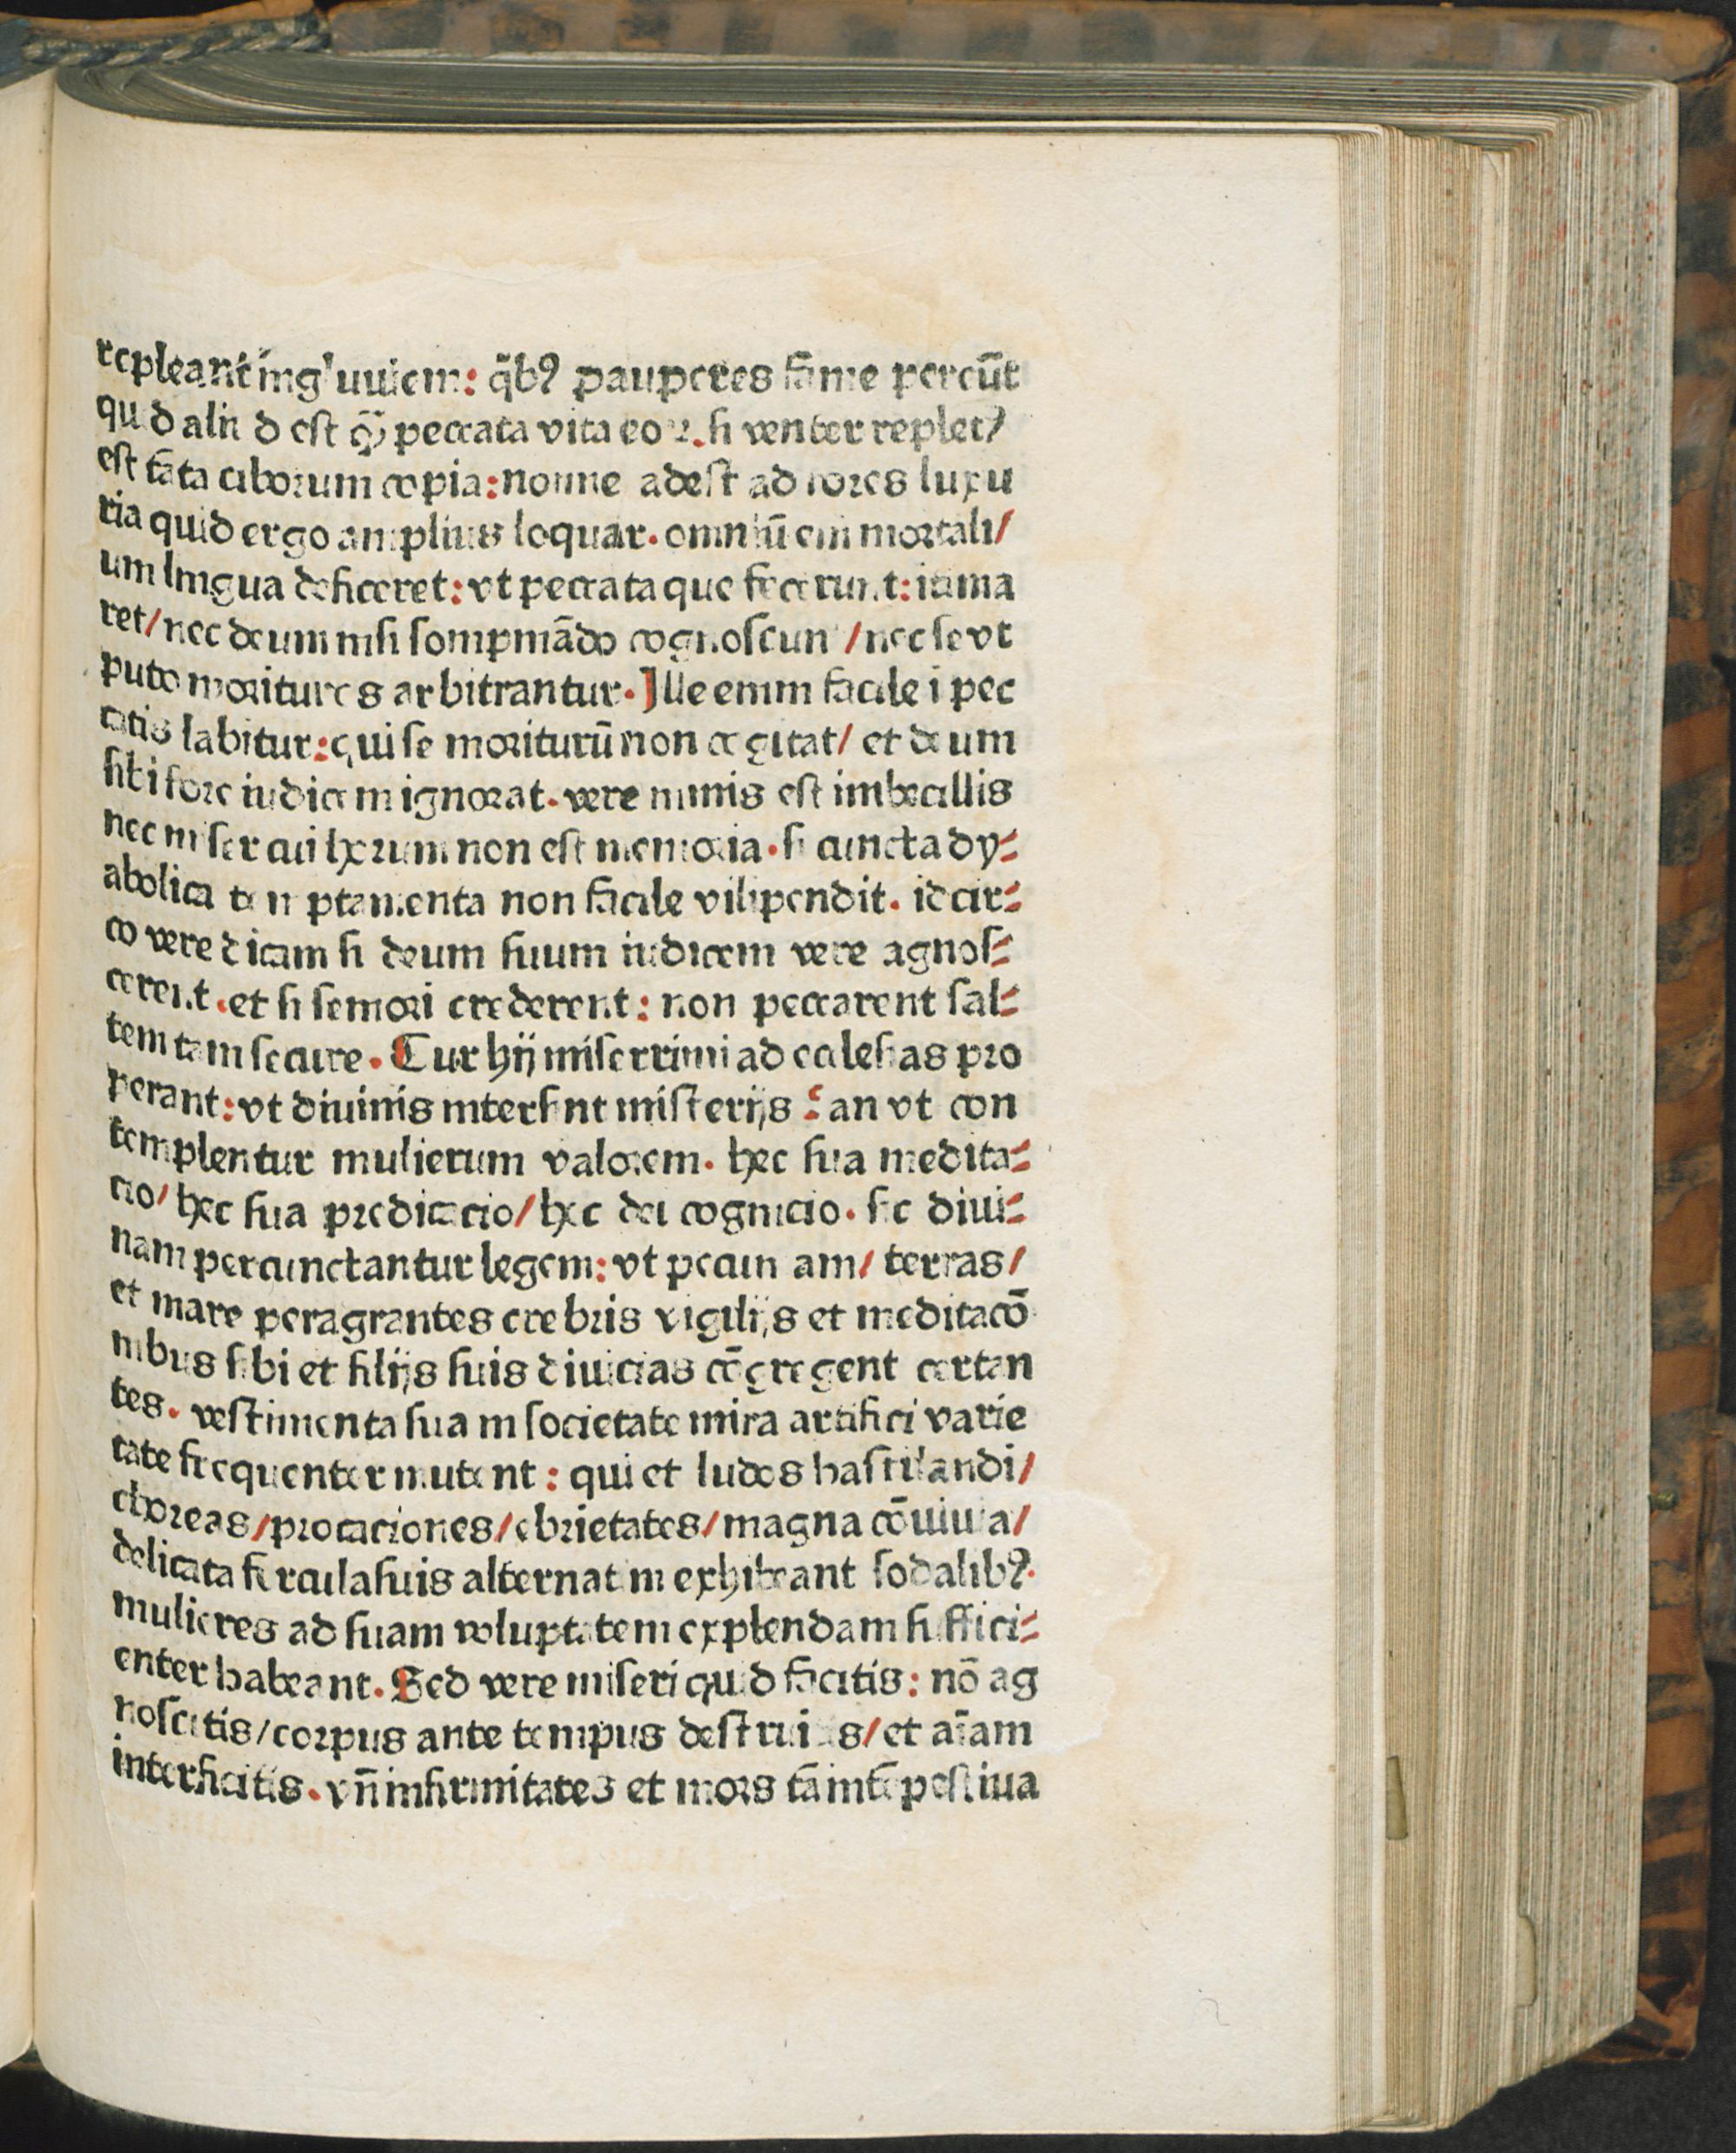 repleant ingluuiem: q̄bꝰ pauperes fāme pereūt
quid aliud est q̄ȝ peccata vita eoꝝ. si venter repletꝰ
est tāta ciborum copia: nonne adest ad fores luxu
ria quid ergo amplius loquar. omniū eni mortali/
um lingua deficeret: vt peccata que fecerunt:
ret/ nec deum nisi sompniādo cognoscunt/ nec se vt
puto morituros arbitrantur. Ille enim facile i pec
catis labitur: qui se moriturū non cogitat/ et deum
sibi fore iudicem ignorat. vere nimis est imbecillis
nec miser cui horum non est memoria. si cuncta dy⸗
abolica temptamenta non facile vilipendit. idcir⸗
co vere dicam si deum suum iudicem vere agnos⸗
cerent. et si se mori crederent: non peccarent sal⸗
tem tam secure. Cur hij miserrimi ad ecclesias pro
perant: vt diuinis intersint misterijs: an vt con
templentur mulierum valorem. hec sua medita⸗
cio/ hec sua predicacio/ hec dei cognicio. sic diui⸗
nam percunctantur legem: vt pecuniam/ terras/
et mare peragrantes crebris vigilijs et meditacō
nibus sibi et filijs suis diuicias cōgregent certan
tes. vestimenta sua in societate mira artifici varie
tate frequenter mutent: qui et ludos hastilandi/
choreas/ procaciones/ ebrietates/ magna cōuiuia/
delicata fercula suis alternatim exhibeant sodalibꝰ.
mulieres ad suam voluptatem explendam suffici⸗
enter habeant. Sed vere miseri quid facitis: nō ag
noscitis/ corpus ante tempus destruitis/ et aīam
interficitis. vn̄ infirmitates et mors tā intēpestiua